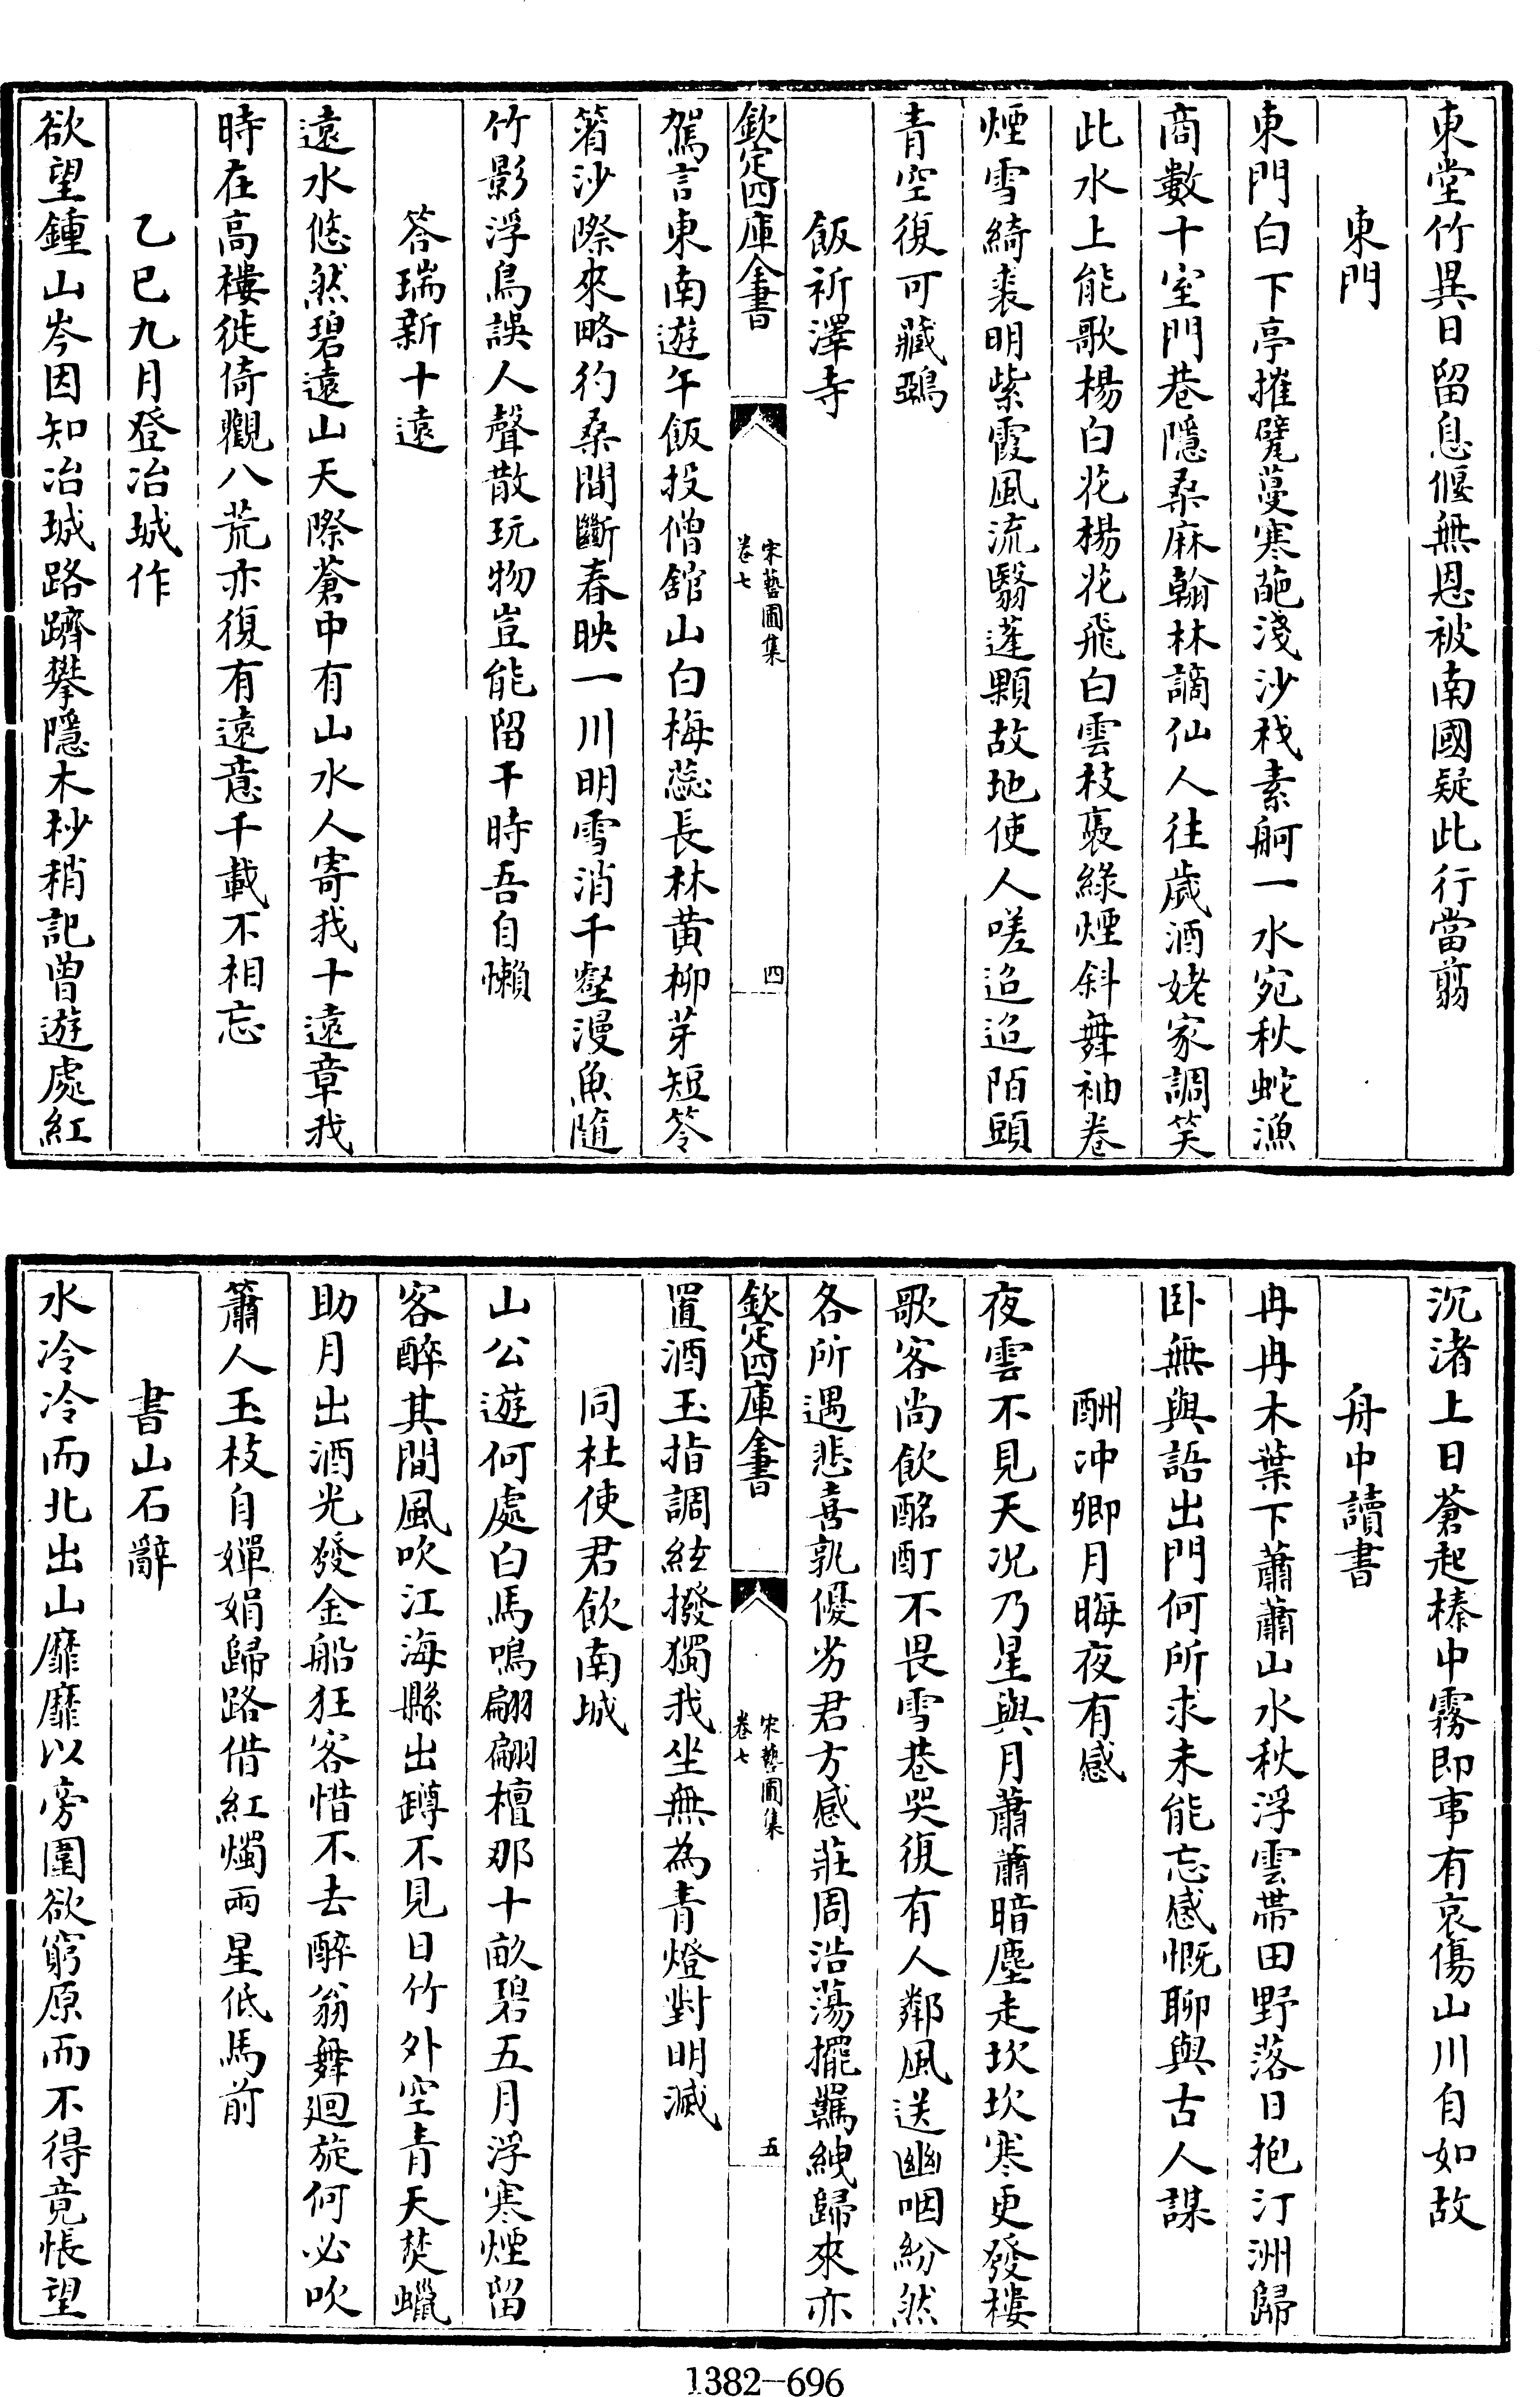 東堂竹異日留息偃無恩被南國疑此行當翦
東門
東門白下亭摧甓蔓寒葩淺沙杙素舸一水宛秋蛇漁
商數十室門巷隱桑麻翰林謫仙人往歲酒姥家調笑
此水上能歌楊白花楊花飛白雲枝裊綠煙斜舞袖卷
煙雪綺裘明紫霞風流翳蓬顆故地使人嗟迢迢陌頭
青空復可藏鵶
飯祈澤寺
欽定四庫全書
宋藝圃集
卷七
四
駕言東南遊午飯投僧舘山白梅蕊長林黄柳芽短笭
箵沙際來略彴桑間斷春映一川明雪消千壑漫魚隨
竹影浮鳥誤人聲散玩物豈能留干時吾自懶
答瑞新十遠
遠水悠然碧遠山天際蒼中有山水人寄我十遠章我
時在高樓徙倚觀八荒亦復有遠意千載不相忘
乙巳九月登冶城作
欲望鍾山岑因知冶城路躋攀隱木杪稍記曾遊處紅
沉渚上日蒼起榛中霧即事有哀傷山川自如故
舟中讀書
冉冉木葉下蕭蕭山水秋浮雲帶田野落日抱汀洲歸
卧無與語出門何所求未能忘感慨聊與古人謀
酬冲卿月晦夜有感
夜雲不見天况乃星與月蕭蕭暗塵走坎坎寒更發樓
歌客尚飲酩酊不畏雪巷哭復有人鄰風送幽咽紛然
各所遇悲喜孰優劣君方感莊周浩蕩擺羈絏歸來亦
欽定四庫全書
宋藝圃集
卷七
五
置酒玉指調絃撥獨我坐無為青燈對明滅
同杜使君飲南城
山公遊何處白馬鳴翩翩檀那十畝碧五月浮寒煙留
客醉其間風吹江海縣出罇不見日竹外空青天焚蠟
助月出酒光發金船狂客惜不去醉翁舞迴旋何必吹
簫人玉枝自嬋娟歸路借紅燭兩星低馬前
書山石辭
水冷冷而北出山靡靡以旁圍欲窮原而不得竟悵望
1382—696